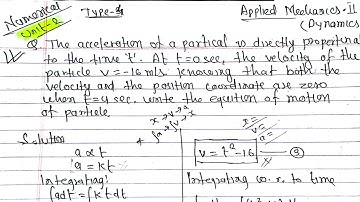 Numerical
Unit-2
Type-2
Applied Mechanics-II
(Dynamics
Q. The acceleration of a partical is directly proportional
to the time 't'. At t=0 sec, the velocity of the
particle v=-16 m/s. knowing that both the
velocity and the position coordinate are zero
when t=4 sec. write the equation of motion
of particle.
x→v→a
∫a→∫v→x
x=
v=
a=
Solution
a ∝ t
a = Kt
v = t²-16
3
Integrating:
Integrating w.r. to time
∫adt=∫kt·dt